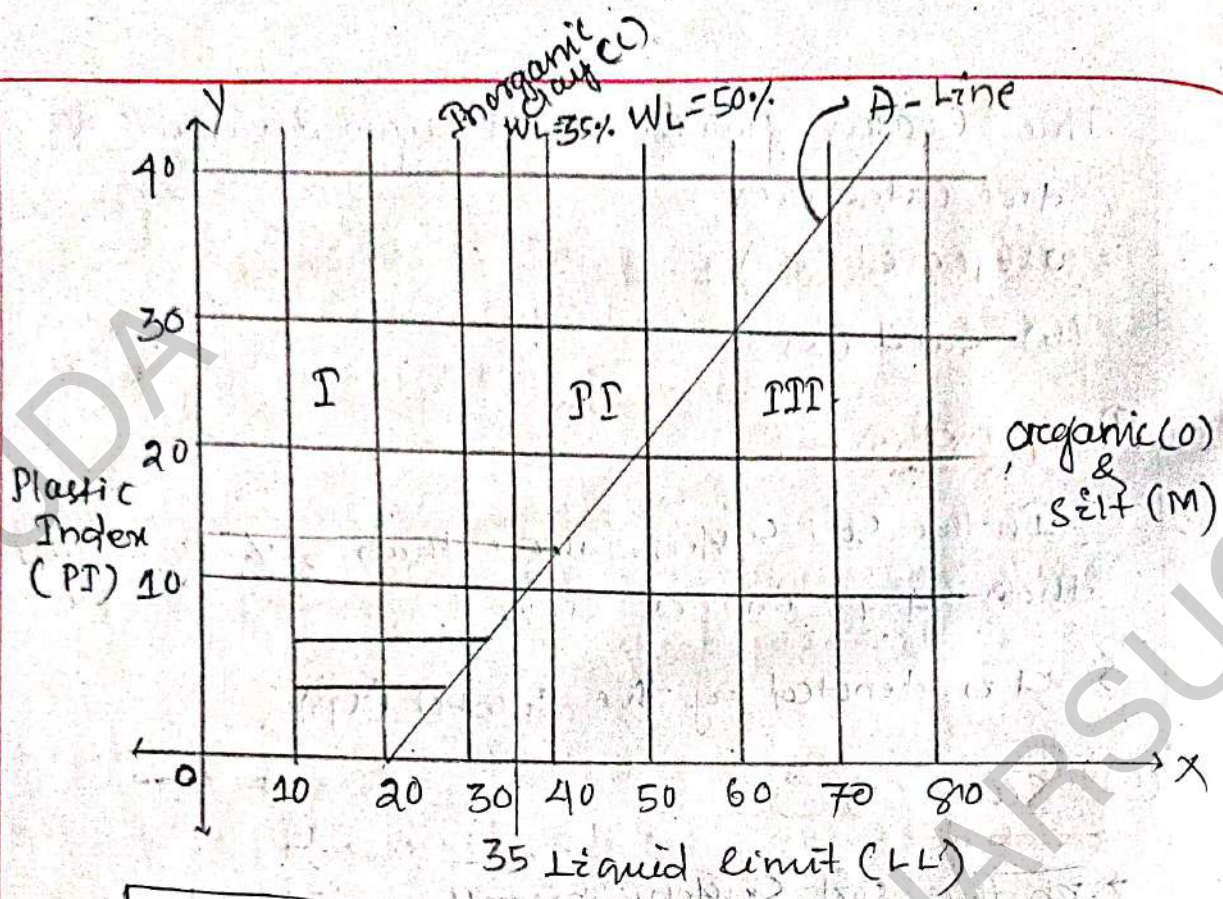 Inorganic
clay (C)
WL=35% WL=50% A-Line
Y
40
30
I II III
20
Plastic
Index
(PI) 10
organic(O)
&
silt (M)
0 10 20 30 40 50 60 70 80 X
35 Liquid limit (LL)
UDA
ARSUG